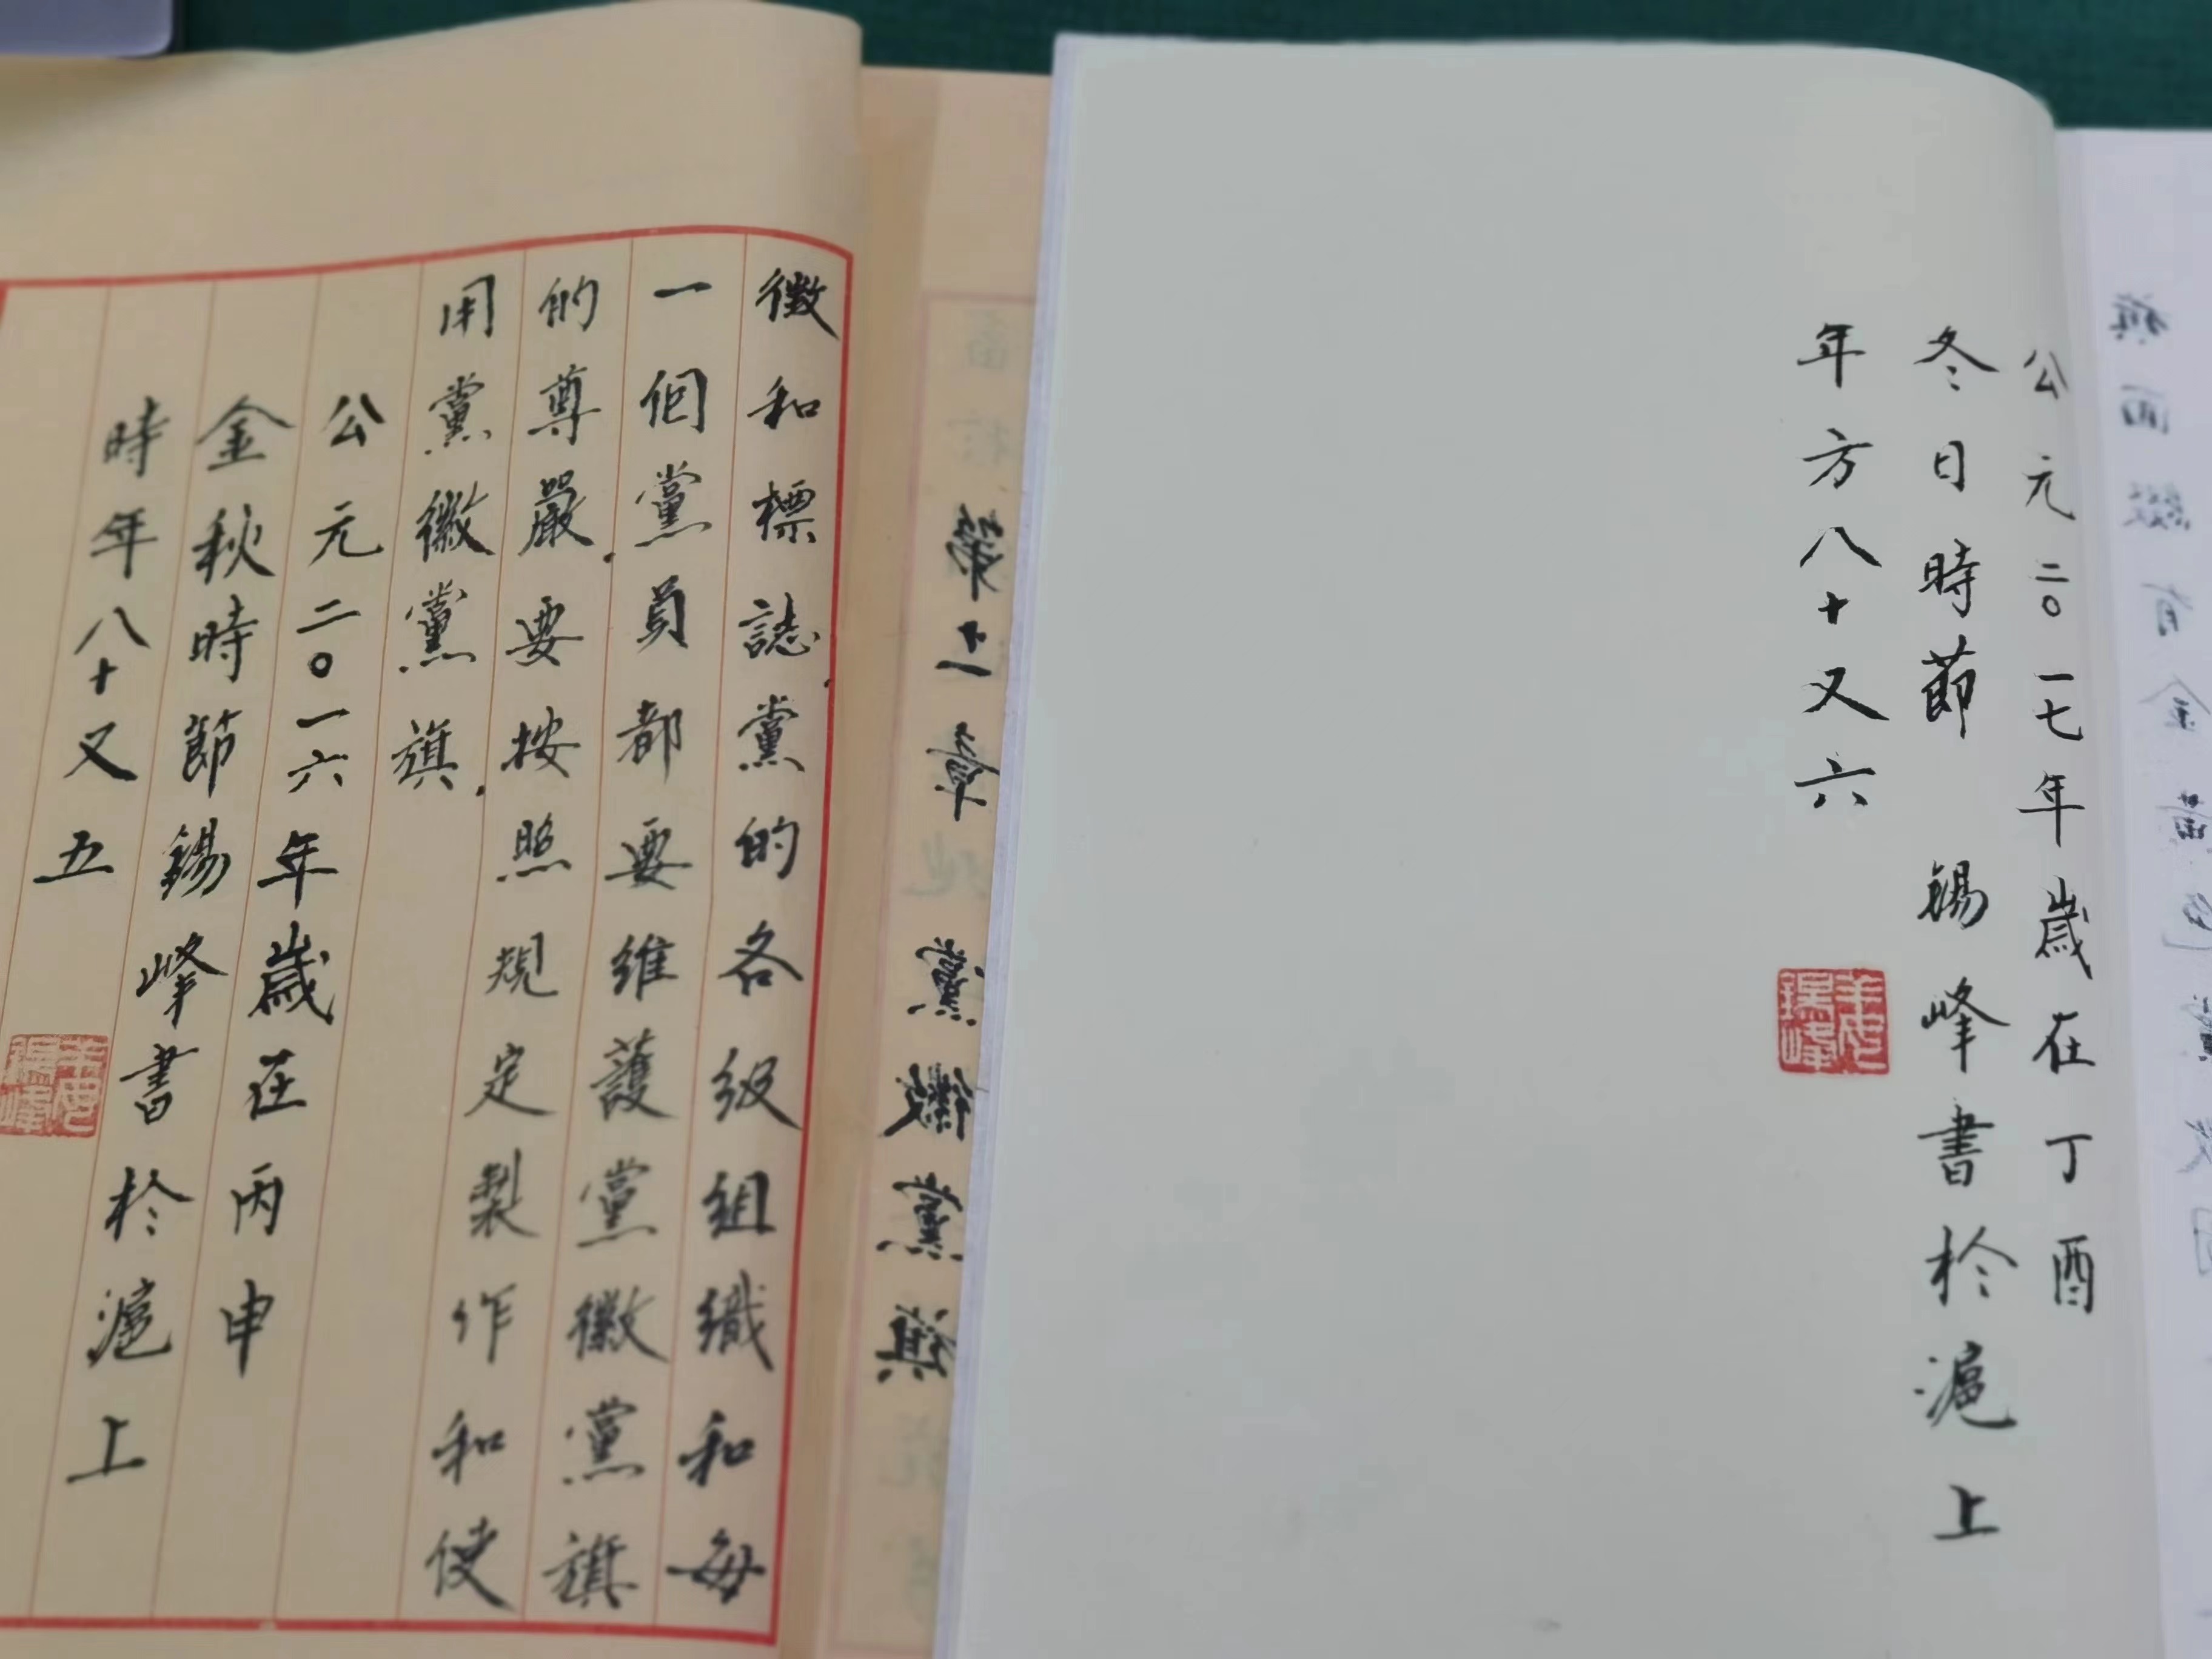 公元二〇一七年歲在丁酉
冬日時節 錫峰書於滬上
年方八十又六
第十一章 黨徽黨旗
徵和標誌.黨的各级組織和每
一個黨員都要維護黨徽黨旗
的尊嚴.要按照規定製作和使
用黨徽黨旗.
公元二〇一六年歲在丙申
金秋時節錫峰書於滬上
時年八十又五